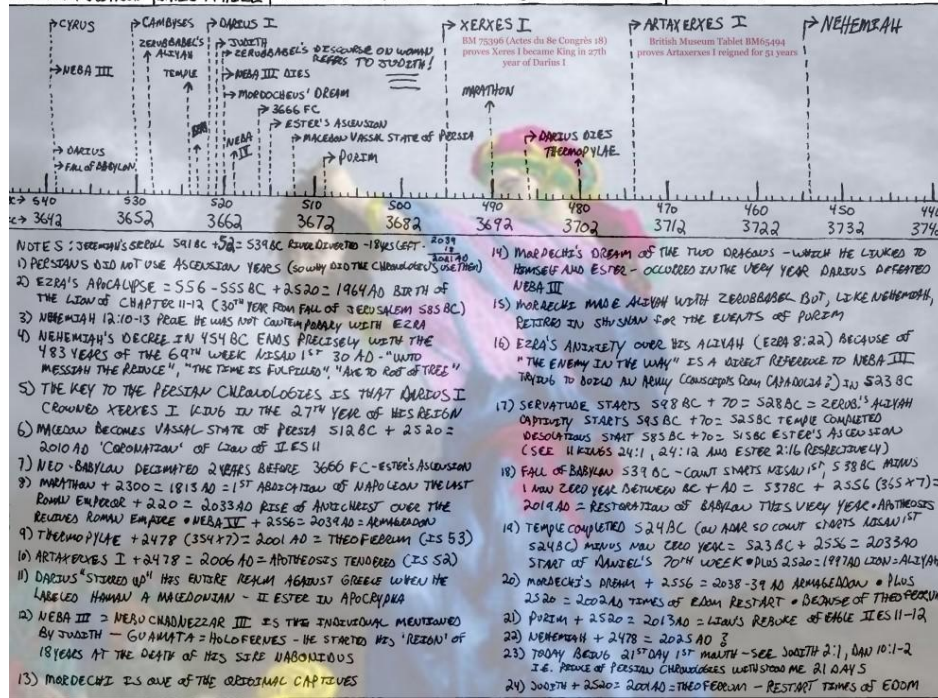 CYRUS
CAMBYSES
DARIUS I
XERXES I
ARTAXERXES I
NEHEMIAH
BM 75396 (Actes du 8e Congrès 18)
proves Xeres I became King in 27th
year of Darius I
British Museum Tablet BM65494
proves Artaxerxes I reigned for 51 years
ZERUBBABEL'S
ALIYAH
JUDITH
ZERUBBABEL'S DISCOURSE ON WOMAN
REFERS TO JUDITH!
NEBA III
TEMPLE
NEBA III DIES
MORDOCHEUS' DREAM
MARATHON
3666 FC
ESTER'S ASCENSION
NEBA IV
MACEDON VASSAL STATE OF PERSIA
DARIUS DIES
THERMOPYLAE
DARIUS
FALL OF BABYLON
PURIM
540 530 520 510 500 490 480 470 460 450 440
3642 3652 3662 3672 3682 3692 3702 3712 3722 3732 374
NOTES: JEREMIAH'S SCROLL 591 BC +52 = 539 BC RIVER DIVERTED - 18 YRS LEFT - 2039
18
2021 AD
1) PERSIANS DID NOT USE ASCENSION YEARS (SO WHY DID THE CHRONOLOGIES USE THEM)
2) EZRA'S APOCALYPSE = 556 - 555 BC + 2520 = 1964 AD BIRTH OF
THE LION OF CHAPTER 11-12 (30TH YEAR FROM FALL OF JERUSALEM 585 BC)
3) NEHEMIAH 12:10-13 PROVE HE WAS NOT CONTEMPORARY WITH EZRA
4) NEHEMIAH'S DECREE IN 454 BC ENDS PRECISELY WITH THE
483 YEARS OF THE 69TH WEEK NISAN 1ST 30 AD - "UNTO
MESSIAH THE PRINCE", "THE TIME IS FULFILLED", "AXE TO ROOT OF TREE"
5) THE KEY TO THE PERSIAN CHRONOLOGIES IS THAT DARIUS I
CROWNED XERXES I KING IN THE 27TH YEAR OF HIS REIGN
6) MACEDON BECOMES VASSAL STATE OF PERSIA 512 BC + 2520 =
2010 AD 'CORONATION' OF LION OF II ES 11
7) NEO-BABYLON DECIMATED 2 YEARS BEFORE 3666 FC - ESTER'S ASCENSION
8) MARATHON + 2300 = 1813 AD = 1ST ABDICATION OF NAPOLEON THE LAST
ROMAN EMPEROR + 220 = 2033 AD RISE OF ANTICHRIST OVER THE
REVIVED ROMAN EMPIRE • NEBA IV + 2556 = 2039 AD = ARMAGEDDON
9) THERMOPYLAE + 2478 (354x7) = 2001 AD = THEOFEBRUM (IS 53)
10) ARTAXERXES I + 2478 = 2006 AD = APOTHEOSIS TENDERED (IS 52)
11) DARIUS "STIRRED UP" HIS ENTIRE REALM AGAINST GREECE WHEN HE
LABELED HAMAN A MACEDONIAN - II ESTER IN APOCRYPHA
12) NEBA III = NEBUCHADNEZZAR III IS THE INDIVIDUAL MENTIONED
BY JUDITH - GUAMATA = HOLOFERNES - HE STARTED HIS 'REIGN' OF
18 YEARS AT THE DEATH OF HIS SIRE NABONIDUS
13) MORDECHI IS ONE OF THE ORIGINAL CAPTIVES
14) MORDECHI'S DREAM OF THE TWO DRAGONS - WHICH HE LINKED TO
HIMSELF AND ESTER - OCCURRED IN THE VERY YEAR DARIUS DEFEATED
NEBA III
15) MORDECHI MADE ALIYAH WITH ZERUBBABEL BUT, LIKE NEHEMIAH,
RETIRED IN SHUSHAN FOR THE EVENTS OF PURIM
16) EZRA'S ANXIETY OVER HIS ALIYAH (EZRA 8:22) BECAUSE OF
"THE ENEMY IN THE WAY" IS A DIRECT REFERENCE TO NEBA III
TRYING TO BUILD AN ARMY (CONSCRIPTS FROM CAPADOCIA?) IN 523 BC
17) SERVATUDE STARTS 598 BC + 70 = 528 BC = ZERUB'S ALIYAH
CAPTIVITY STARTS 595 BC + 70 = 525 BC TEMPLE COMPLETED
DESOLATIONS START 585 BC + 70 = 515 BC ESTER'S ASCENSION
(SEE II KINGS 24:1, 24:12 AND ESTER 2:16 RESPECTIVELY)
18) FALL OF BABYLON 539 BC - COUNT STARTS NISAN 1ST, 538 BC MINUS
1 NON ZERO YEAR BETWEEN BC + AD = 537 BC + 2556 (365x7) =
2019 AD = RESTORATION OF BABYLON THIS VERY YEAR • APOTHEOSIS
19) TEMPLE COMPLETED 524 BC (ON ADAR SO COUNT STARTS NISAN 1ST
524 BC) MINUS NON ZERO YEAR = 523 BC + 2556 = 2033 AD
START OF DANIEL'S 70TH WEEK • PLUS 2520 = 1997 AD LION=ALIYAH
20) MORDECHI'S DREAM + 2556 = 2038-39 AD ARMAGEDDON • PLUS
2520 = 2002 AD TIMES OF EDOM RESTART • BECAUSE OF THEOFEBRUM
21) PURIM + 2520 = 2013 AD = LION'S REBUKE OF EAGLE II ES 11-12
22) NEHEMIAH + 2478 = 2025 AD ?
23) TODAY BEING 21ST DAY 1ST MONTH - SEE JUDITH 2:1, DAN 10:1-2
I.E. PRINCE OF PERSIAN CHRONOLOGIES WITHSTOOD ME 21 DAYS
24) JUDITH + 2520 = 2001 AD = THEOFEBRUM - RESTART TIMES OF EDOM